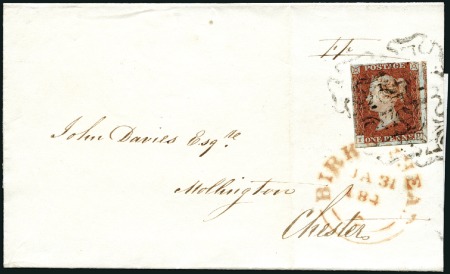 POSTAGE
ONE PENNY
John Davies Esqre
Mollington
Chester
JA 31
184